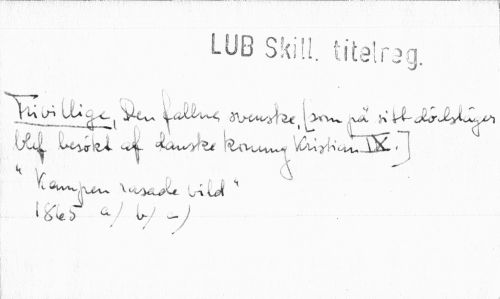 LUB Skill. titelreg.
Frivillige, Den fallne svenske, [som på sitt dödsläger
blef besökt af danske konung Kristian IX.]
"Kampen rasade vild"
1865 a) b) c)